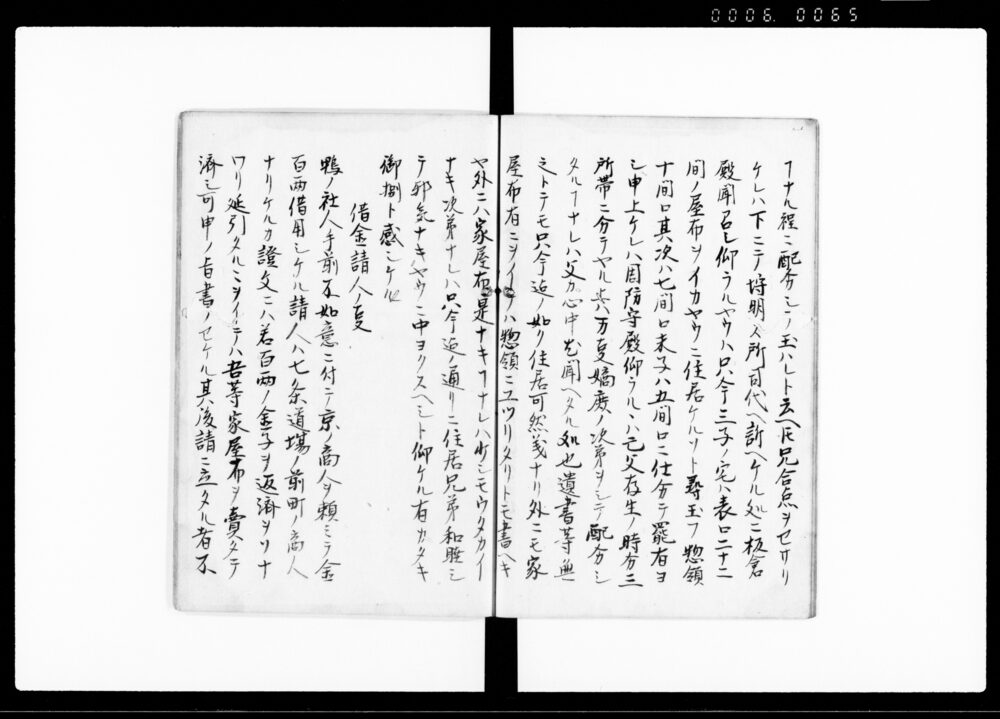 0006.0065
ヿナル程ニ配分シノ玉ハレト云ヘ𪜈兄合点ヲセサリ
ケレハ下ニテ埒明ス所司代ヘ訴ヘケル処ニ板倉
殿聞召シ仰ラルヤウハ只今三子ノ宅ハ表口二十二
間ノ屋布ヲイカヤウニ住居ケルソト尋玉フ惣領
十間口其次ハ七間口末子ハ五間口ニ仕分テ罷有ヨ
シ申上ケレハ周防守殿仰ラルヽハ亡父存生ノ時分三
所帯ニ分テヤル共万夏嫡庶ノ次第ヲシテ配分シ
タルヿナレハ父カ心中モ聞ヘタル処也遺書等無
之トテモ只今迠ノ如ク住居可然義ナリ外ニモ家
屋布有ニヲイテハ惣領ニユツリタリトモ書ヘキ
ヤ外ニハ家屋布是ナキヿナレハ少シモウタカイ
ナキ次第ナレハ只今迠ノ通リニ住居兄弟和睦シ
テ邪気ナキヤウニ中ヨクスヘシト仰ケル有カタキ
御捌ト感シケル
借金請人ノ夏
鴨ノ社人手前不如意ニ付テ京ノ商人ヲ頼ミテ金
百両借用シケル請人ハ七条道場ノ前町ノ商人
ナリケルカ證文ニハ若百両ノ金子ヲ返済ヲソナ
ワリ延引タルニヲイテハ吾等家屋布ヲ賣タテ
済シ可申ノ旨書ノセケル其後請ニ立タル者不